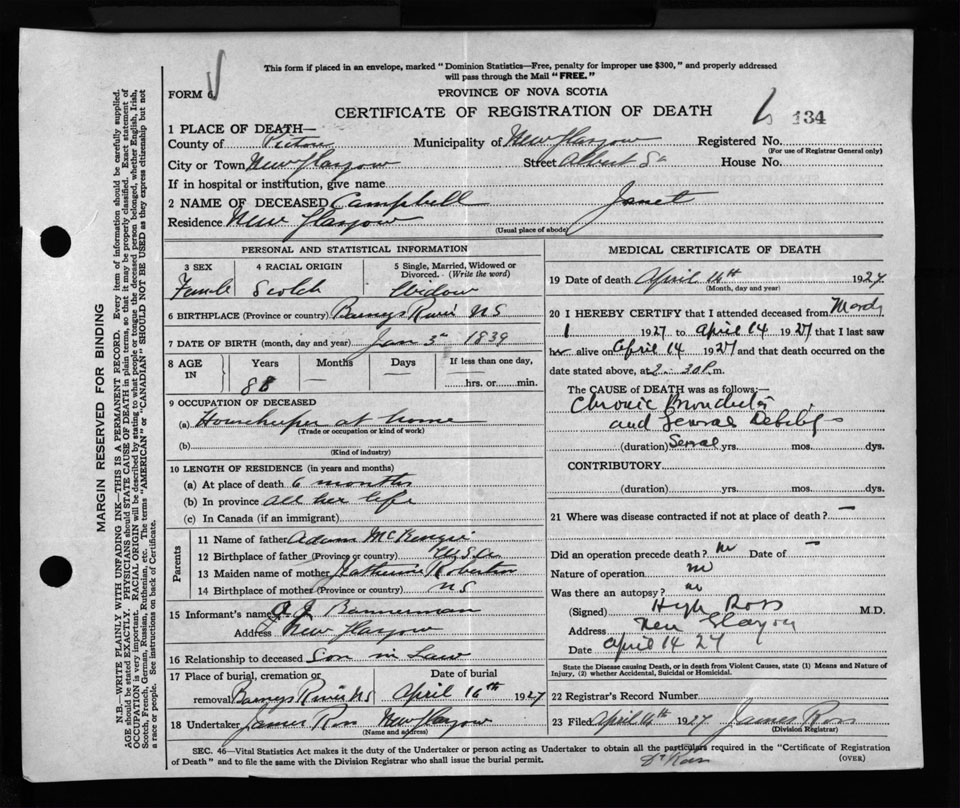 This form if placed in an envelope, marked "Dominion Statistics—Free, penalty for improper use $300," and properly addressed
will pass through the Mail "FREE."
FORM 6
PROVINCE OF NOVA SCOTIA
CERTIFICATE OF REGISTRATION OF DEATH
134
1 PLACE OF DEATH—
County of Pictou Municipality of New Glasgow Registered No.
(For use of Registrar General only)
City or Town New Glasgow Street Albert St House No.
If in hospital or institution, give name
2 NAME OF DECEASED Campbell Janet
Residence New Glasgow
(Usual place of abode)
PERSONAL AND STATISTICAL INFORMATION
3 SEX 4 RACIAL ORIGIN 5 Single, Married, Widowed or
Divorced. (Write the word)
Female Scotch Widow
6 BIRTHPLACE (Province or country) Barneys River N S
7 DATE OF BIRTH (month, day and year) Jan 5th 1839
8 AGE IN Years Months Days If less than one day,
88 — — hrs. or min.
9 OCCUPATION OF DECEASED
(a) Housekeeper at home
(Trade or occupation or kind of work)
(b)
(Kind of industry)
10 LENGTH OF RESIDENCE (in years and months)
(a) At place of death 6 months
(b) In province all her life
(c) In Canada (if an immigrant)
Parents
11 Name of father Adam McKenzie
12 Birthplace of father (Province or country) U.S.A
13 Maiden name of mother Catherine Robertson
14 Birthplace of mother (Province or country) N S
15 Informant's name A J Bannerman
Address New Glasgow
16 Relationship to deceased Son in Law
17 Place of burial, cremation or Date of burial
removal Barneys River NS April 16th 1927
18 Undertaker James Ross New Glasgow
(Name and address)
MEDICAL CERTIFICATE OF DEATH
19 Date of death April 14th 1927
(Month, day and year)
20 I HEREBY CERTIFY that I attended deceased from March
1 1927 to April 14 1927 that I last saw
her alive on April 14 1927 and that death occurred on the
date stated above, at 2-30 P.m.
The CAUSE of DEATH was as follows:—
Chronic Bronchitis
and General Debility
(duration) Several yrs. mos. dys.
CONTRIBUTORY
(duration) yrs. mos. dys.
21 Where was disease contracted if not at place of death? —
Did an operation precede death? no Date of —
Nature of operation no
Was there an autopsy? no
(Signed) Hugh Ross M.D.
Address New Glasgow
Date April 14 27
State the Disease causing Death, or in death from Violent Causes, state (1) Means and Nature of
Injury, (2) whether Accidental, Suicidal or Homicidal.
22 Registrar's Record Number
23 Filed April 14th 1927 James Ross
(Division Registrar)
SEC. 46—Vital Statistics Act makes it the duty of the Undertaker or person acting as Undertaker to obtain all the particulars required in the "Certificate of Registration
of Death" and to file the same with the Division Registrar who shall issue the burial permit.
Dr Ross
(OVER)
MARGIN RESERVED FOR BINDING
N.B.—WRITE PLAINLY WITH UNFADING INK—THIS IS A PERMANENT RECORD. Every item of information should be carefully supplied.
AGE should be stated EXACTLY. PHYSICIANS should STATE CAUSE OF DEATH in plain terms, so that it may be properly classified. Exact statement of
OCCUPATION is very important. RACIAL ORIGIN will be described by stating to what people or tongue the deceased person belonged, whether English, Irish,
Scotch, French, German, Russian, Ruthenian, etc. The terms "AMERICAN" or "CANADIAN" SHOULD NOT BE USED as they express citizenship but not
a race or people. See instructions on back of Certificate.